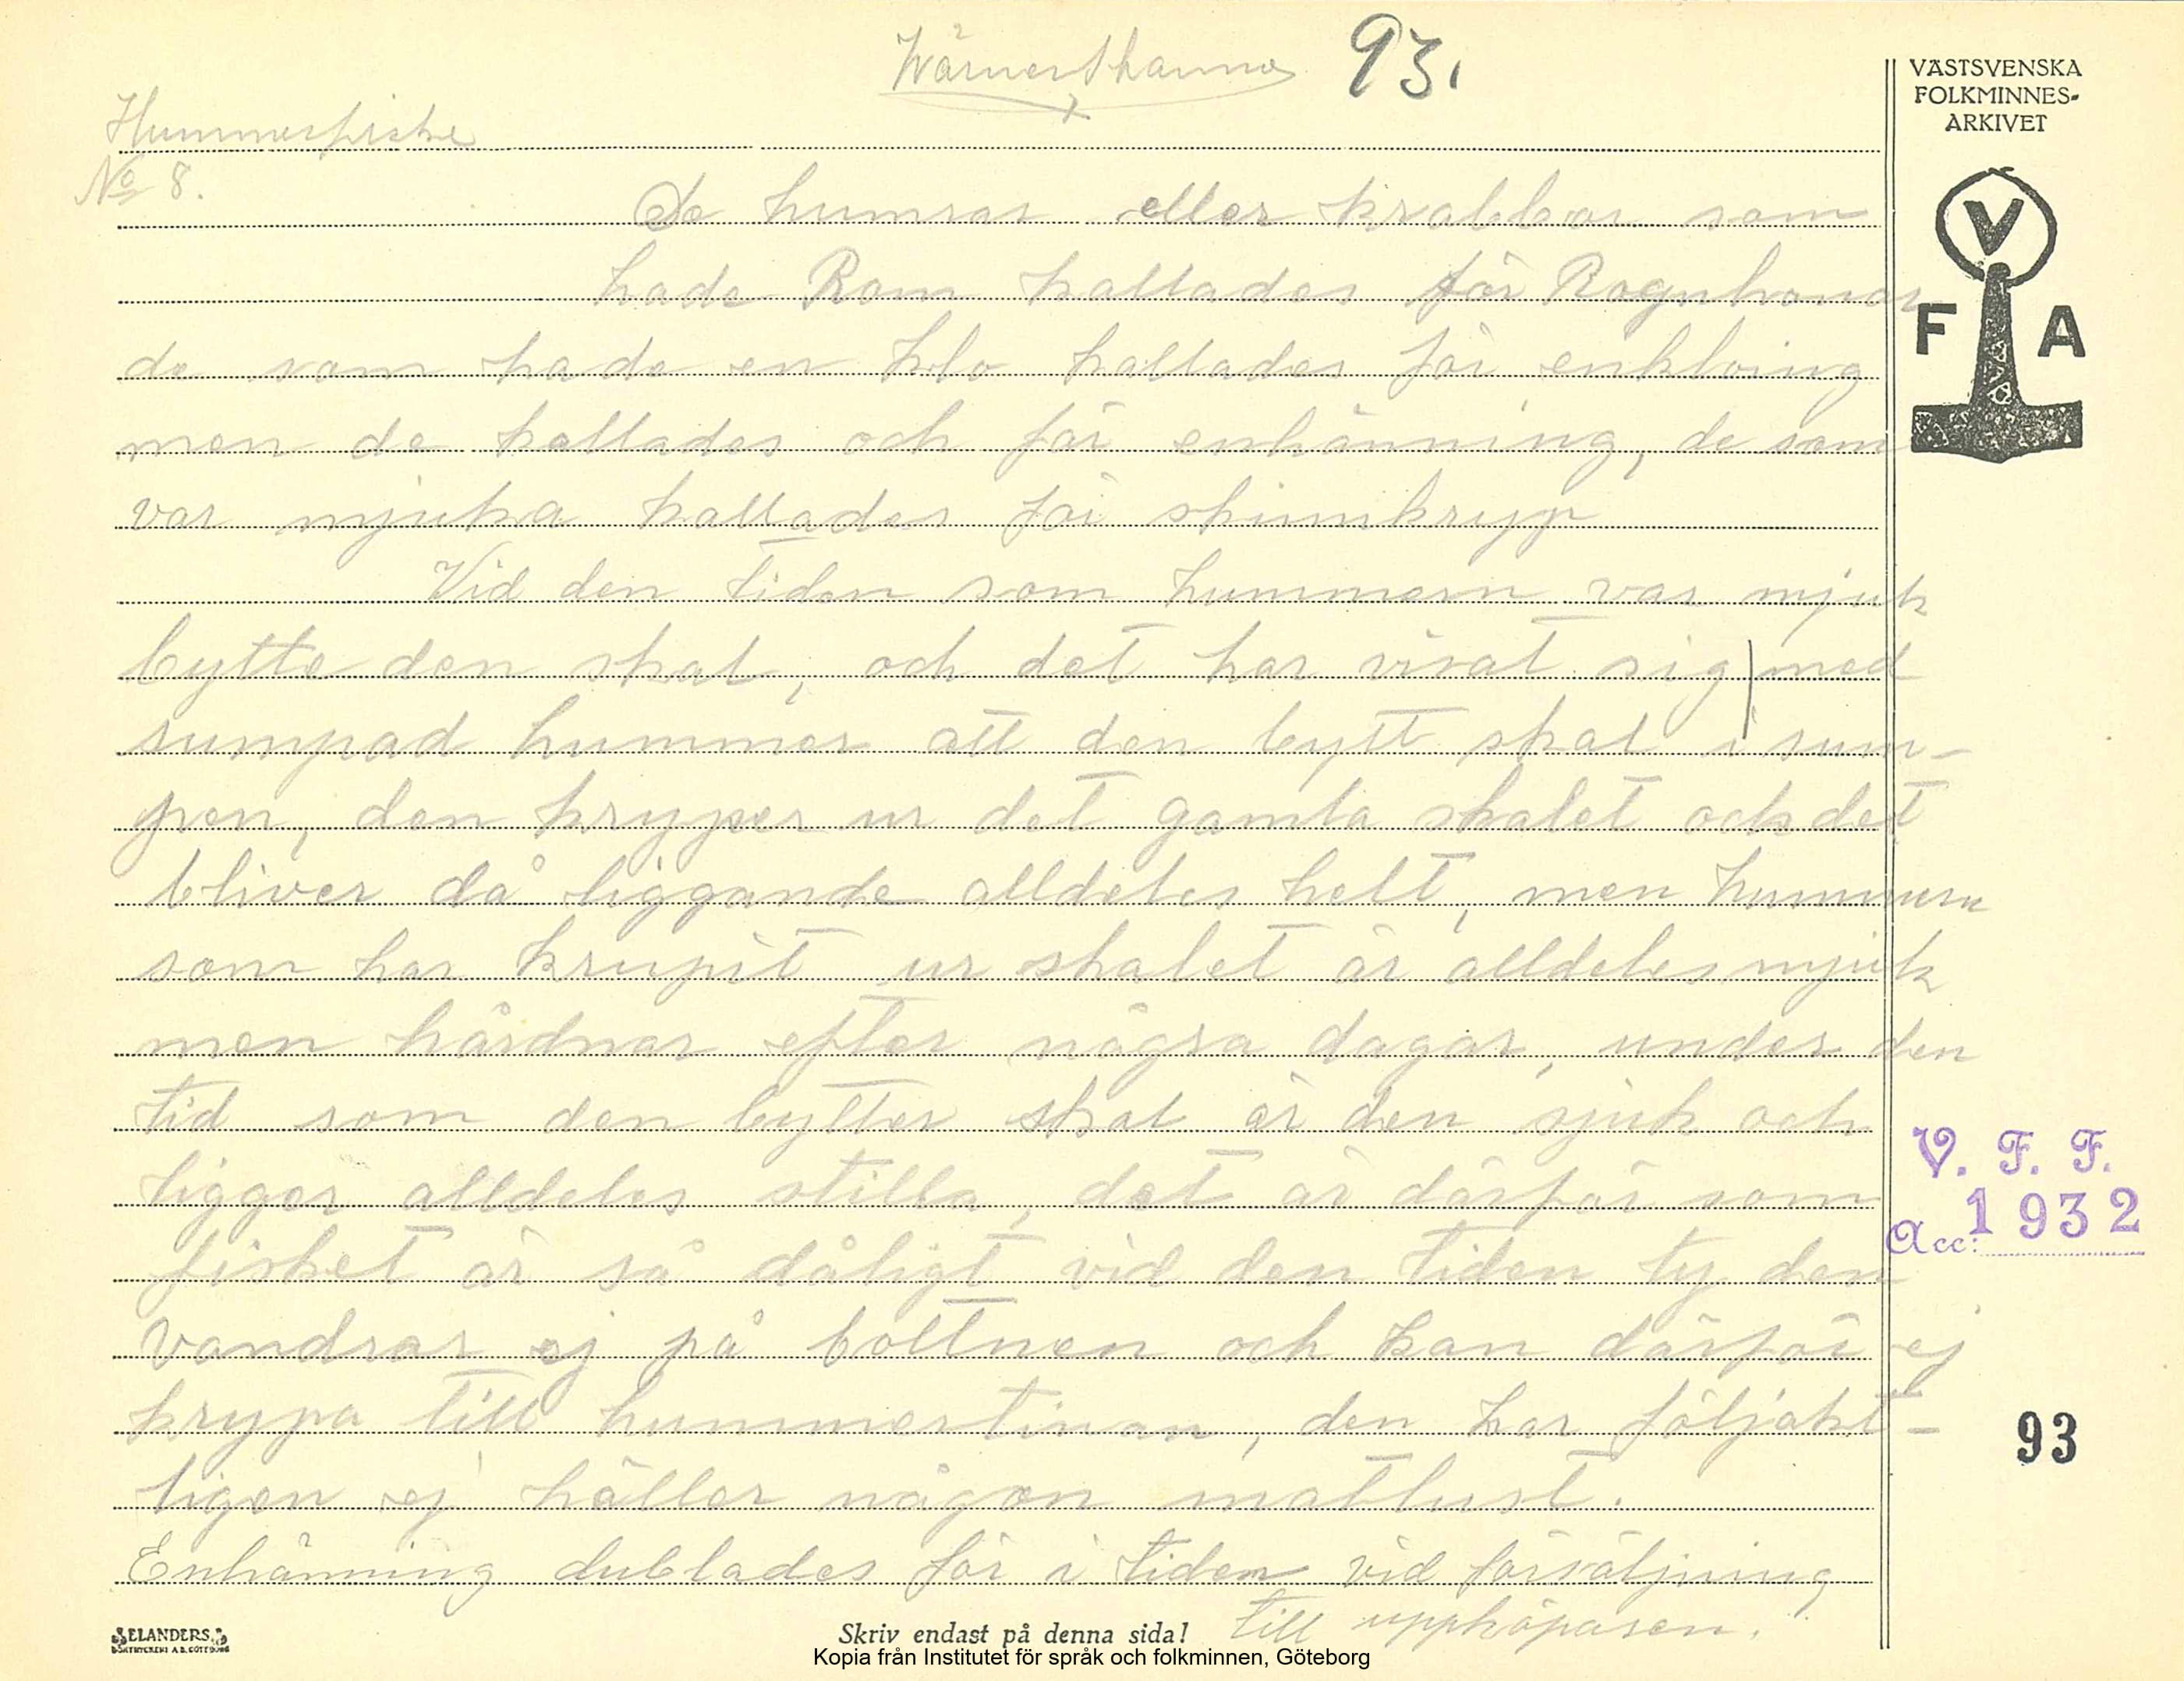 Wärner Hanno 93.
VÄSTSVENSKA
FOLKMINNES-
ARKIVET
V
F A
Hummerfiske
No 8.
De humrar eller krabbor som
hade Rom kallades för Rognhonor
de som hade en klo kallades för enkloing
men de kallades och för enhänning, de som
var mjuka kallades för skinnkryp
Vid den tiden som hummern var mjuk
bytte den skal, och det har visat sig med
sumpad hummer att den bytt skal i sum-
pen, den kryper ur det gamla skalet och det
bliver då liggande alldeles helt, men hummern
som har krupit ur skalet är alldeles mjuk
men hårdnar efter några dagar, under den
tid som den bytter skal är den sjuk och
ligger alldeles stilla, det är därför som
fisket är så dåligt vid den tiden ty den
vandrar ej på bottnen och kan därför ej
krypa till hummertinan, den har följakt-
ligen ej häller någon matlust.
Enhänning dublades för i tiden vid försäljning
till uppköparen.
V. F. F.
Acc: 1932
93
ELANDERS
BOKTRYCKERI A.B. GÖTEBORG
Skriv endast på denna sida!
Kopia från Institutet för språk och folkminnen, Göteborg